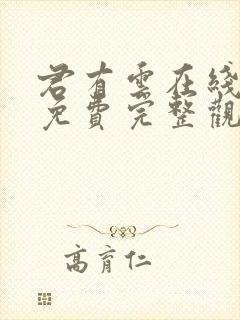 君有雲在綫
免費完整觀
高育仁